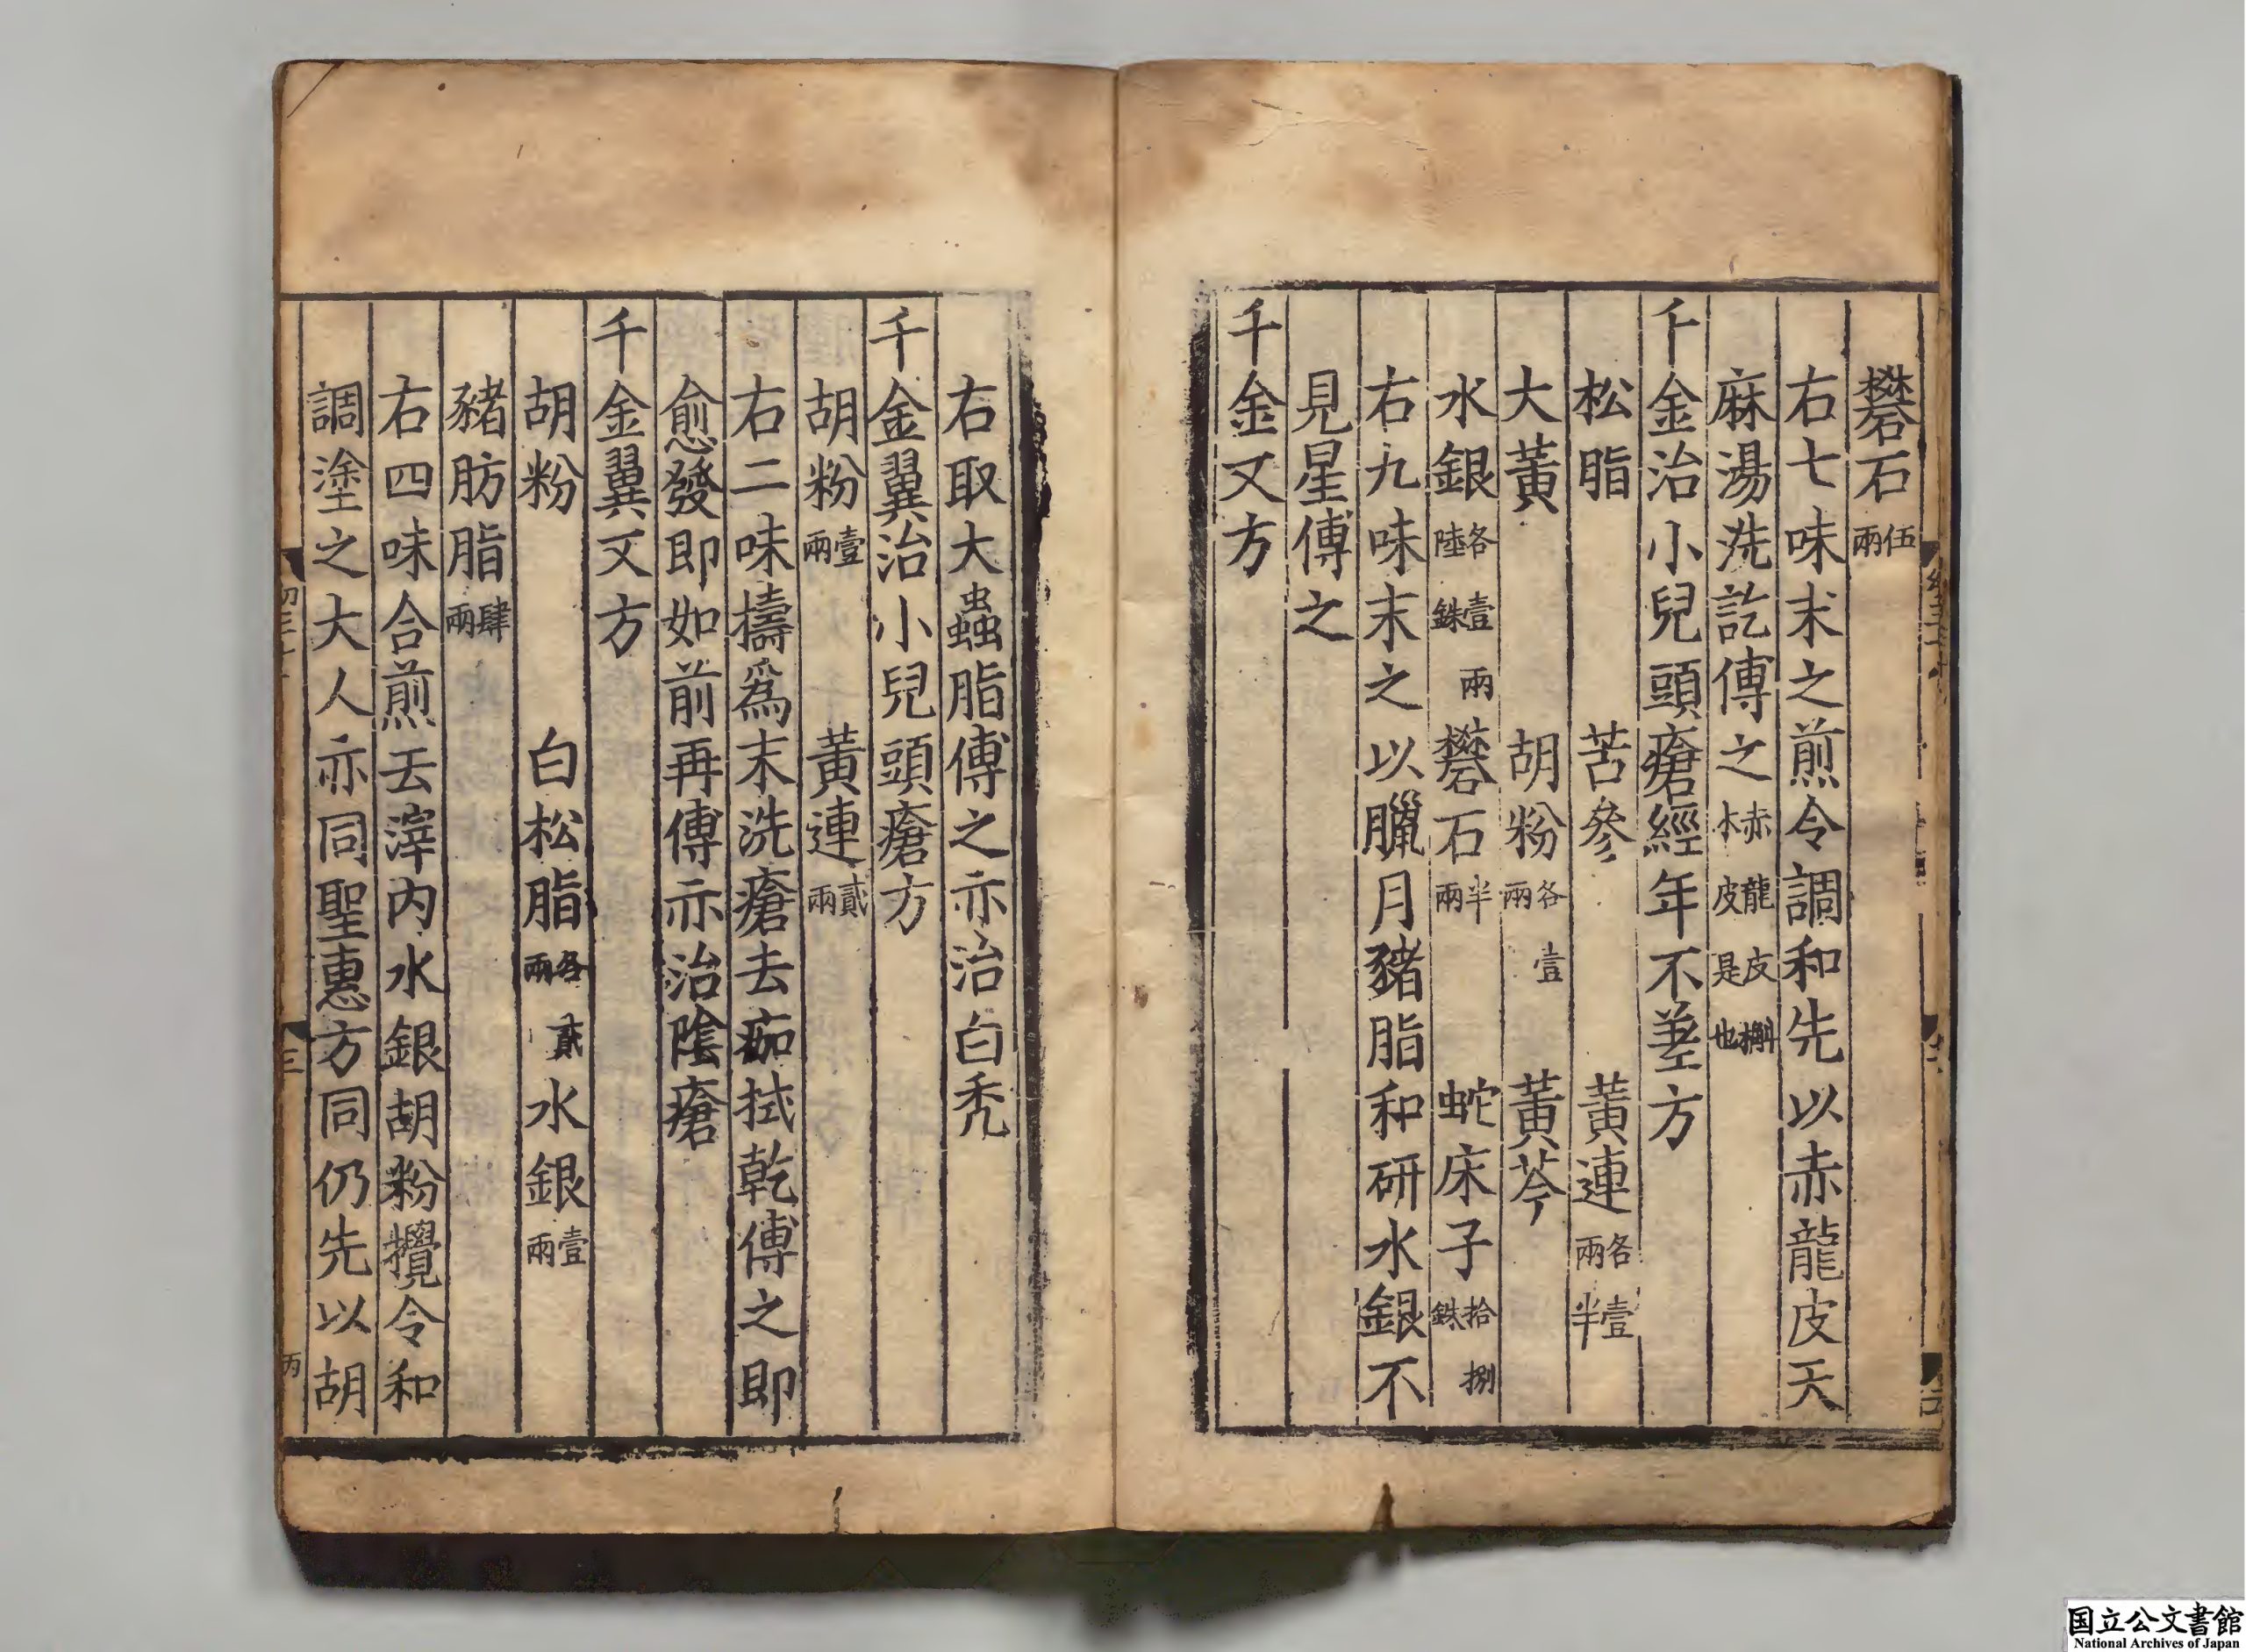 礬石伍兩
右七味末之煎令調和先以赤龍皮天
麻湯洗訖傅之赤龍皮槲木皮是也
千金治小兒頭瘡經年不差方
松脂 苦參 黃連各壹兩半
大黃 胡粉各壹兩 黃芩
水銀各壹兩陸銖 礬石半兩 蛇床子拾捌銖
右九味末之以臘月豬脂和研水銀不
見星傅之
千金又方
右取大蟲脂傅之亦治白禿
千金翼治小兒頭瘡方
胡粉壹兩 黃連貳兩
右二味擣爲末洗瘡去痂拭乾傅之即
愈發即如前再傅亦治陰瘡
千金翼又方
胡粉 白松脂各貳兩 水銀壹兩
豬肪脂肆兩
右四味合煎去滓內水銀胡粉攪令和
調塗之大人亦同聖惠方同仍先以胡
三
丙
国立公文書館
National Archives of Japan